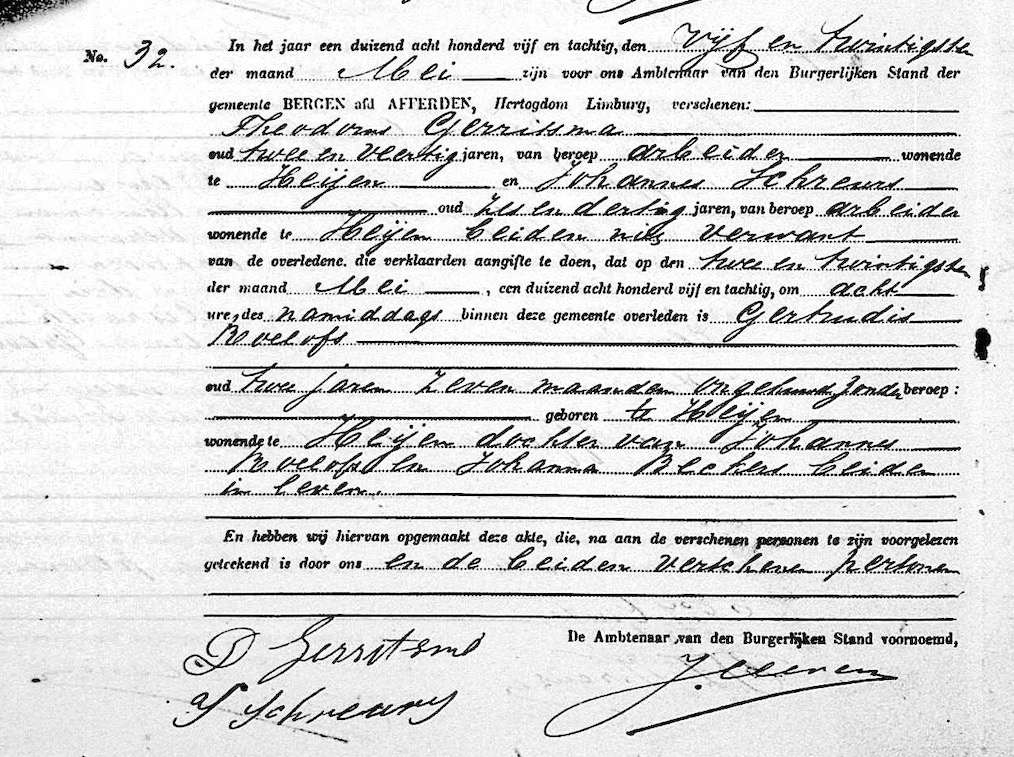 No. 32. In het jaar een duizend acht honderd vijf en tachtig, den Vijf en twintigsten
der maand Mei zijn voor ons Ambtenaar van den Burgerlijken Stand der
gemeente BERGEN afd AFFERDEN, Hertogdom Limburg, verschenen:
Theodorus Gerritsma
oud twee en veertig jaren, van beroep arbeider wonende
te Heijen en Johannes Schreurs
oud zes en dertig jaren, van beroep arbeider
wonende te Heijen beiden niet verwant
van de overledene. die verklaarden aangifte te doen, dat op den twee en twintigsten
der maand Mei, een duizend acht honderd vijf en tachtig, om acht
ure, des namiddags binnen deze gemeente overleden is Gertrudis
Roelofs
oud twee jaren zeven maanden ongehuwd zonder beroep:
geboren te Heijen
wonende te Heijen dochter van Johannes
Roelofs en Johanna Beckers beiden
in leven.
En hebben wij hiervan opgemaakt deze akte, die, na aan de verschenen personen te zijn voorgelezen
geteekend is door ons en de beiden verschenen personen
De Ambtenaar van den Burgerlijken Stand voornoemd,
Gerritsma
Schreurs